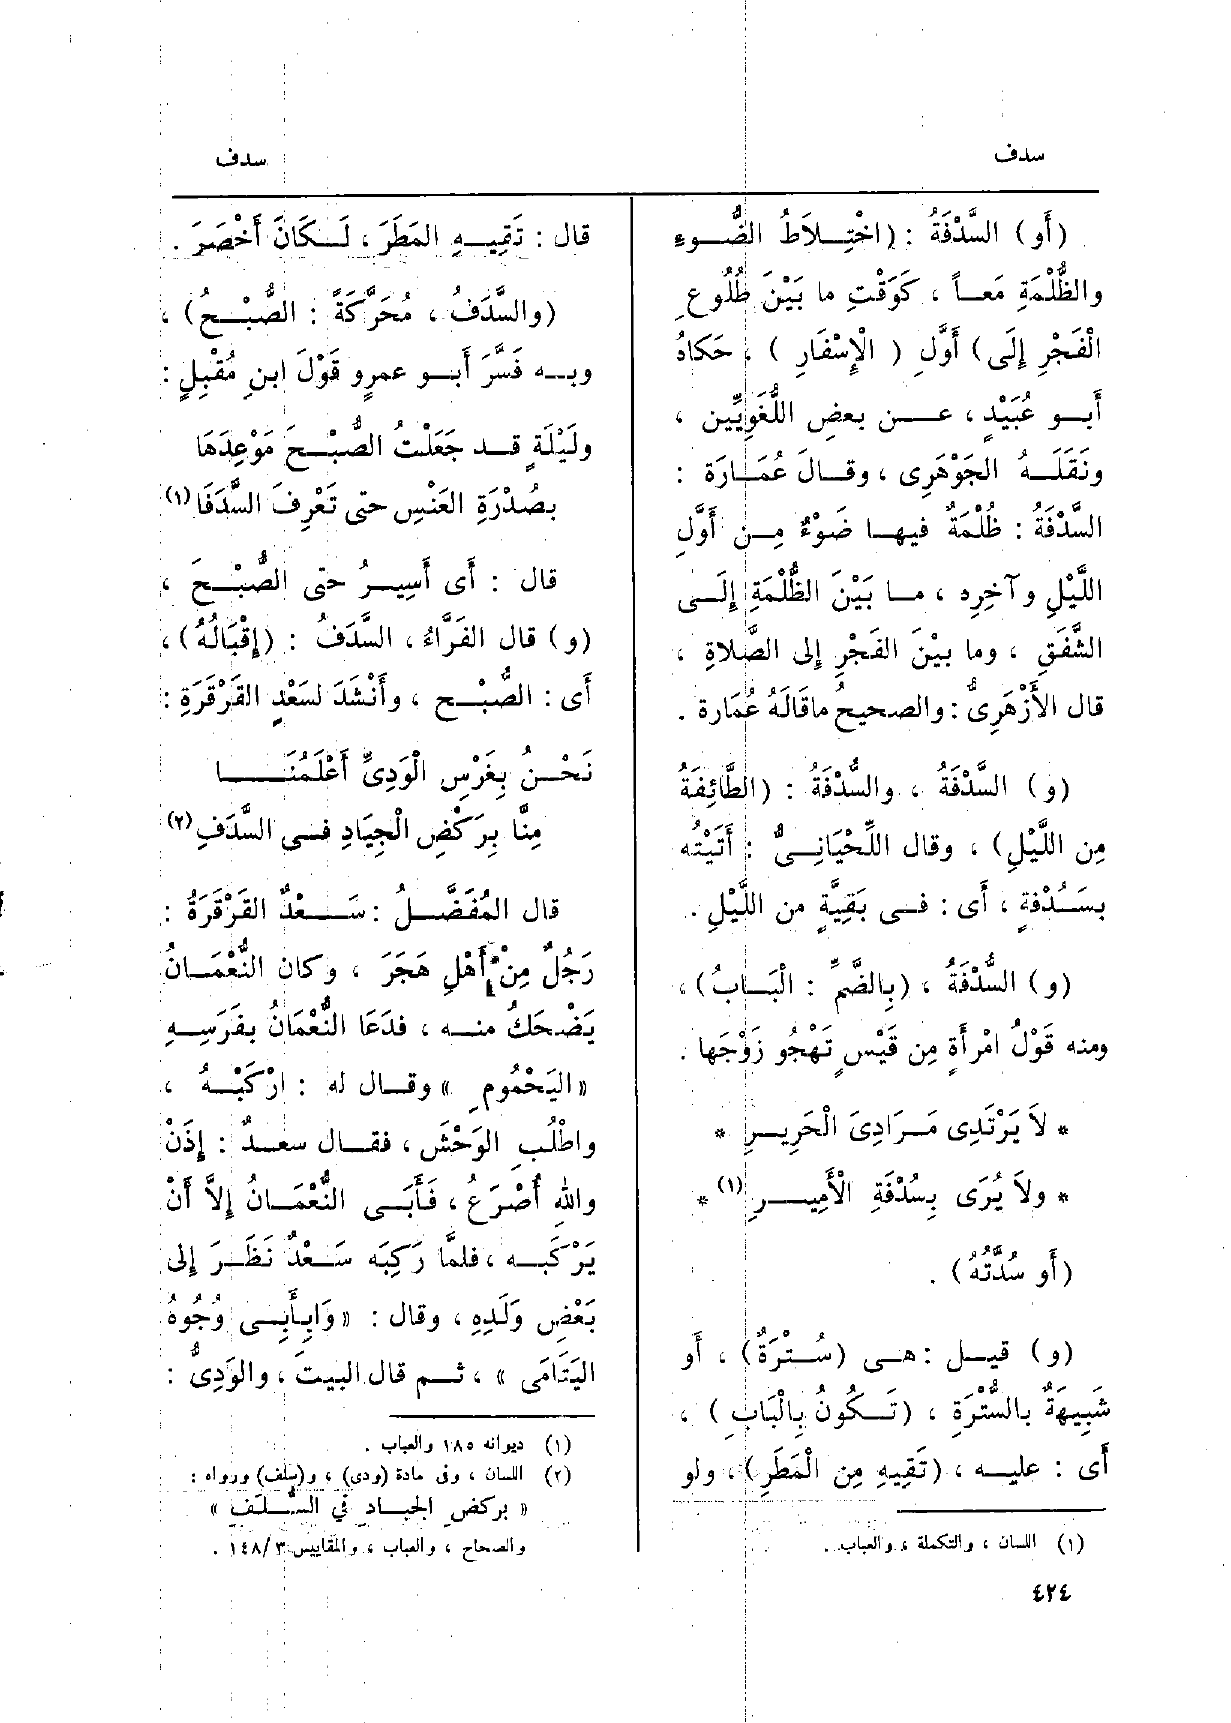 سدف
سدف
(أو) السَّدْفَةُ : (اخْتِلاَطُ الضُّوءِ
والظُّلْمَةِ مَعاً ، كَوَقْتِ ما بَيْنَ طُلُوعِ
الْفَجْرِ إِلَى) أَوَّلِ ( الْإِسْفَارِ ) ، حَكاهُ
أَبو عُبَيْدٍ ، عن بعضِ اللُّغَوِيِّين ،
ونَقَلَه الجَوْهَرِى ، وقالَ عُمَارَة :
السَّدْفَةُ : ظُلْمَةٌ فيها ضَوْءٌ مِن أَوَّلِ
اللَّيْلِ وآخِرِه ، ما بَيْنَ الظُّلْمَةِ إِلَى
الشَّفَقِ ، وما بيْنَ الفَجْرِ إلى الصَّلاةِ ،
قال الأَزْهَرِىُّ : والصحيحُ ماقَالَهُ عُمَارة .
(و) السَّدْفَةُ ، والسُّدْفَةُ : (الطَّائِفَةُ
مِن اللَّيْلِ) ، وقال اللِّحْيَانِىُّ : أَتَيْتُه
بسَدْفَةٍ ، أى : فى بَقِيَّةٍ من اللَّيْلِ .
(و) السُّدْفَةُ ، (بِالضَّمِّ : الْبَابُ) ،
ومنه قَوْلُ امْرأَةٍ مِن قَيْسٍ تَهْجُو زَوْجَها .
* لاَ يَرْتَدِى مَرَادِىَ الْحَرِيرِ *
* ولاَ يُرَى بِسُدْفَةِ الْأَمِيرِ (١) *
(أَو سُدَّتُهُ) .
(و) قيل : هى (سُتْرَةٌ) ، أَو
شَبِيهَةٌ بالسُّتْرَةِ ، (تَكُونُ بِالْبَابِ ) ،
أَى : عليه ، (تَقِيهِ مِن الْمَطَرِ) ، ولو
(١) اللسان ، والتكملة ، والعباب .
٤٢٤
قال : تَقِيهِ المَطَرَ ، لَكَانَ أَخْصَرَ .
(والسَّدَفُ ، مُحَرَّكَةً : الصُّبْحُ) ،
وبه فَسَّرَ أَبو عمرو قَوْلَ ابنِ مُقْبِلٍ :
ولَيْلَةٍ قد جَعَلْتُ الصُّبْحَ مَوْعِدَهَا
بصُدْرَةِ العَنْسِ حتى تَعْرِفَ السَّدَفَا (١)
قال : أَى أَسِيرُ حتى الصُّبْحَ ،
(و) قال الفَرَّاءُ ، السَّدَفُ : (إِقْبَالُهُ) ،
أَى : الصُّبْح ، وأَنْشَدَ لسَعْدٍ القَرْقَرَةِ :
نَحْنُ بِغَرْسِ الْوَدِىِّ أَعْلَمُنَا
مِنَّا بِرَكْضِ الْجِيَادِ فى السَّدَفِ (٢)
قال المُفَضَّلُ : سَعْدٌ القَرْقَرَةُ :
رَجُلٌ مِنْ أَهْلِ هَجَرَ ، وكان النُّعْمَانُ
يَضْحَكُ منه ، فدَعَا النُّعْمَانُ بفَرَسِهِ
« اليَحْمُومِ » وقال له : ارْكَبْهُ ،
واطْلُبِ الوَحْشَ ، فقال سعدٌ : إِذَنْ
واللهِ أُصْرَعُ ، فَأَبَى النُّعْمَانُ إِلاَّ أَنْ
يَرْكَبه ، فلمَّا رَكِبَه سَعْدٌ نَظَرَ إلى
بَعْضِ وَلَدِهِ ، وقال : « وَابِأَبِى وُجُوهُ
اليَتَامَى » ، ثم قال البيتَ ، والوَدِىُّ :
(١) ديوانه ١٨٥ والعباب .
(٢) اللسان ، وفى مادة (ودى) ، و(سلف) ورواه :
« بركضِ الجيادِ في السُّلَفِ »
والصحاح ، والعباب ، والمقاييس ٣/ ١٤٨ .